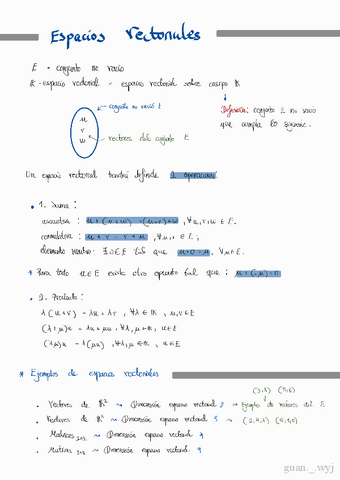 Espacios Vectoriales
E = conjunto no vacío
K-espacio vectorial = espacio vectorial sobre cuerpo K
conjunto no vacío E
u
v
w
vectores del conjunto E
Definición: conjunto E no vacío
que cumpla lo siguiente.
Un espacio vectorial tendrá definida 2 operaciones
• 1. Suma:
asociativa: u+(v+w) = (u+v)+w, ∀u,v,w ∈ E.
conmutativa: u+v = v+u, ∀u,v ∈ E;
elemento neutro: ∃ 0 ∈ E tal que u+0 = u, ∀u ∈ E.
Para todo u ∈ E existe otro opuesto tal que: u+(-u) = 0
• 2. Producto:
λ(u+v) = λu + λv, ∀λ ∈ K, u,v ∈ E
(λ+μ)u = λu + μu, ∀λ,μ ∈ K, u ∈ E
(λμ)u = λ(μu), ∀λ,μ ∈ K, u ∈ E
* Ejemplos de espacios vectoriales
• Vectores de R² → Dimensión espacio vectorial 2 → Ejemplo de vectores del E
• Vectores de → Dimensión espacio vectorial 3 →
• Matrices → Dimensión espacio vectorial
• Matrices → Dimensión espacio vectorial
guan._.wyj